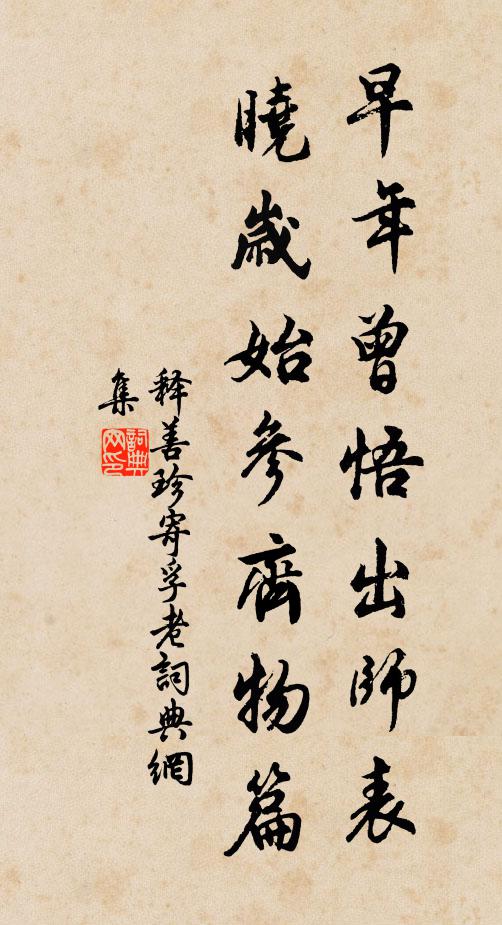 早年曾悟出師表
曉歲始參齊物篇
释善珍寄孚老詞典網
集
詞典
网印